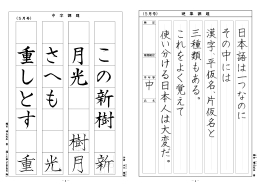 (5月号)
中学課題
この新樹
月光
さへも
重しとす
樹月
光
重
(5月号)
硬筆課題
日本語は一つなのに
その中には
漢字・平仮名・片仮名と
三種類もある。
これをよく覚えて
使い分ける日本人は大変だ。
中
氏名